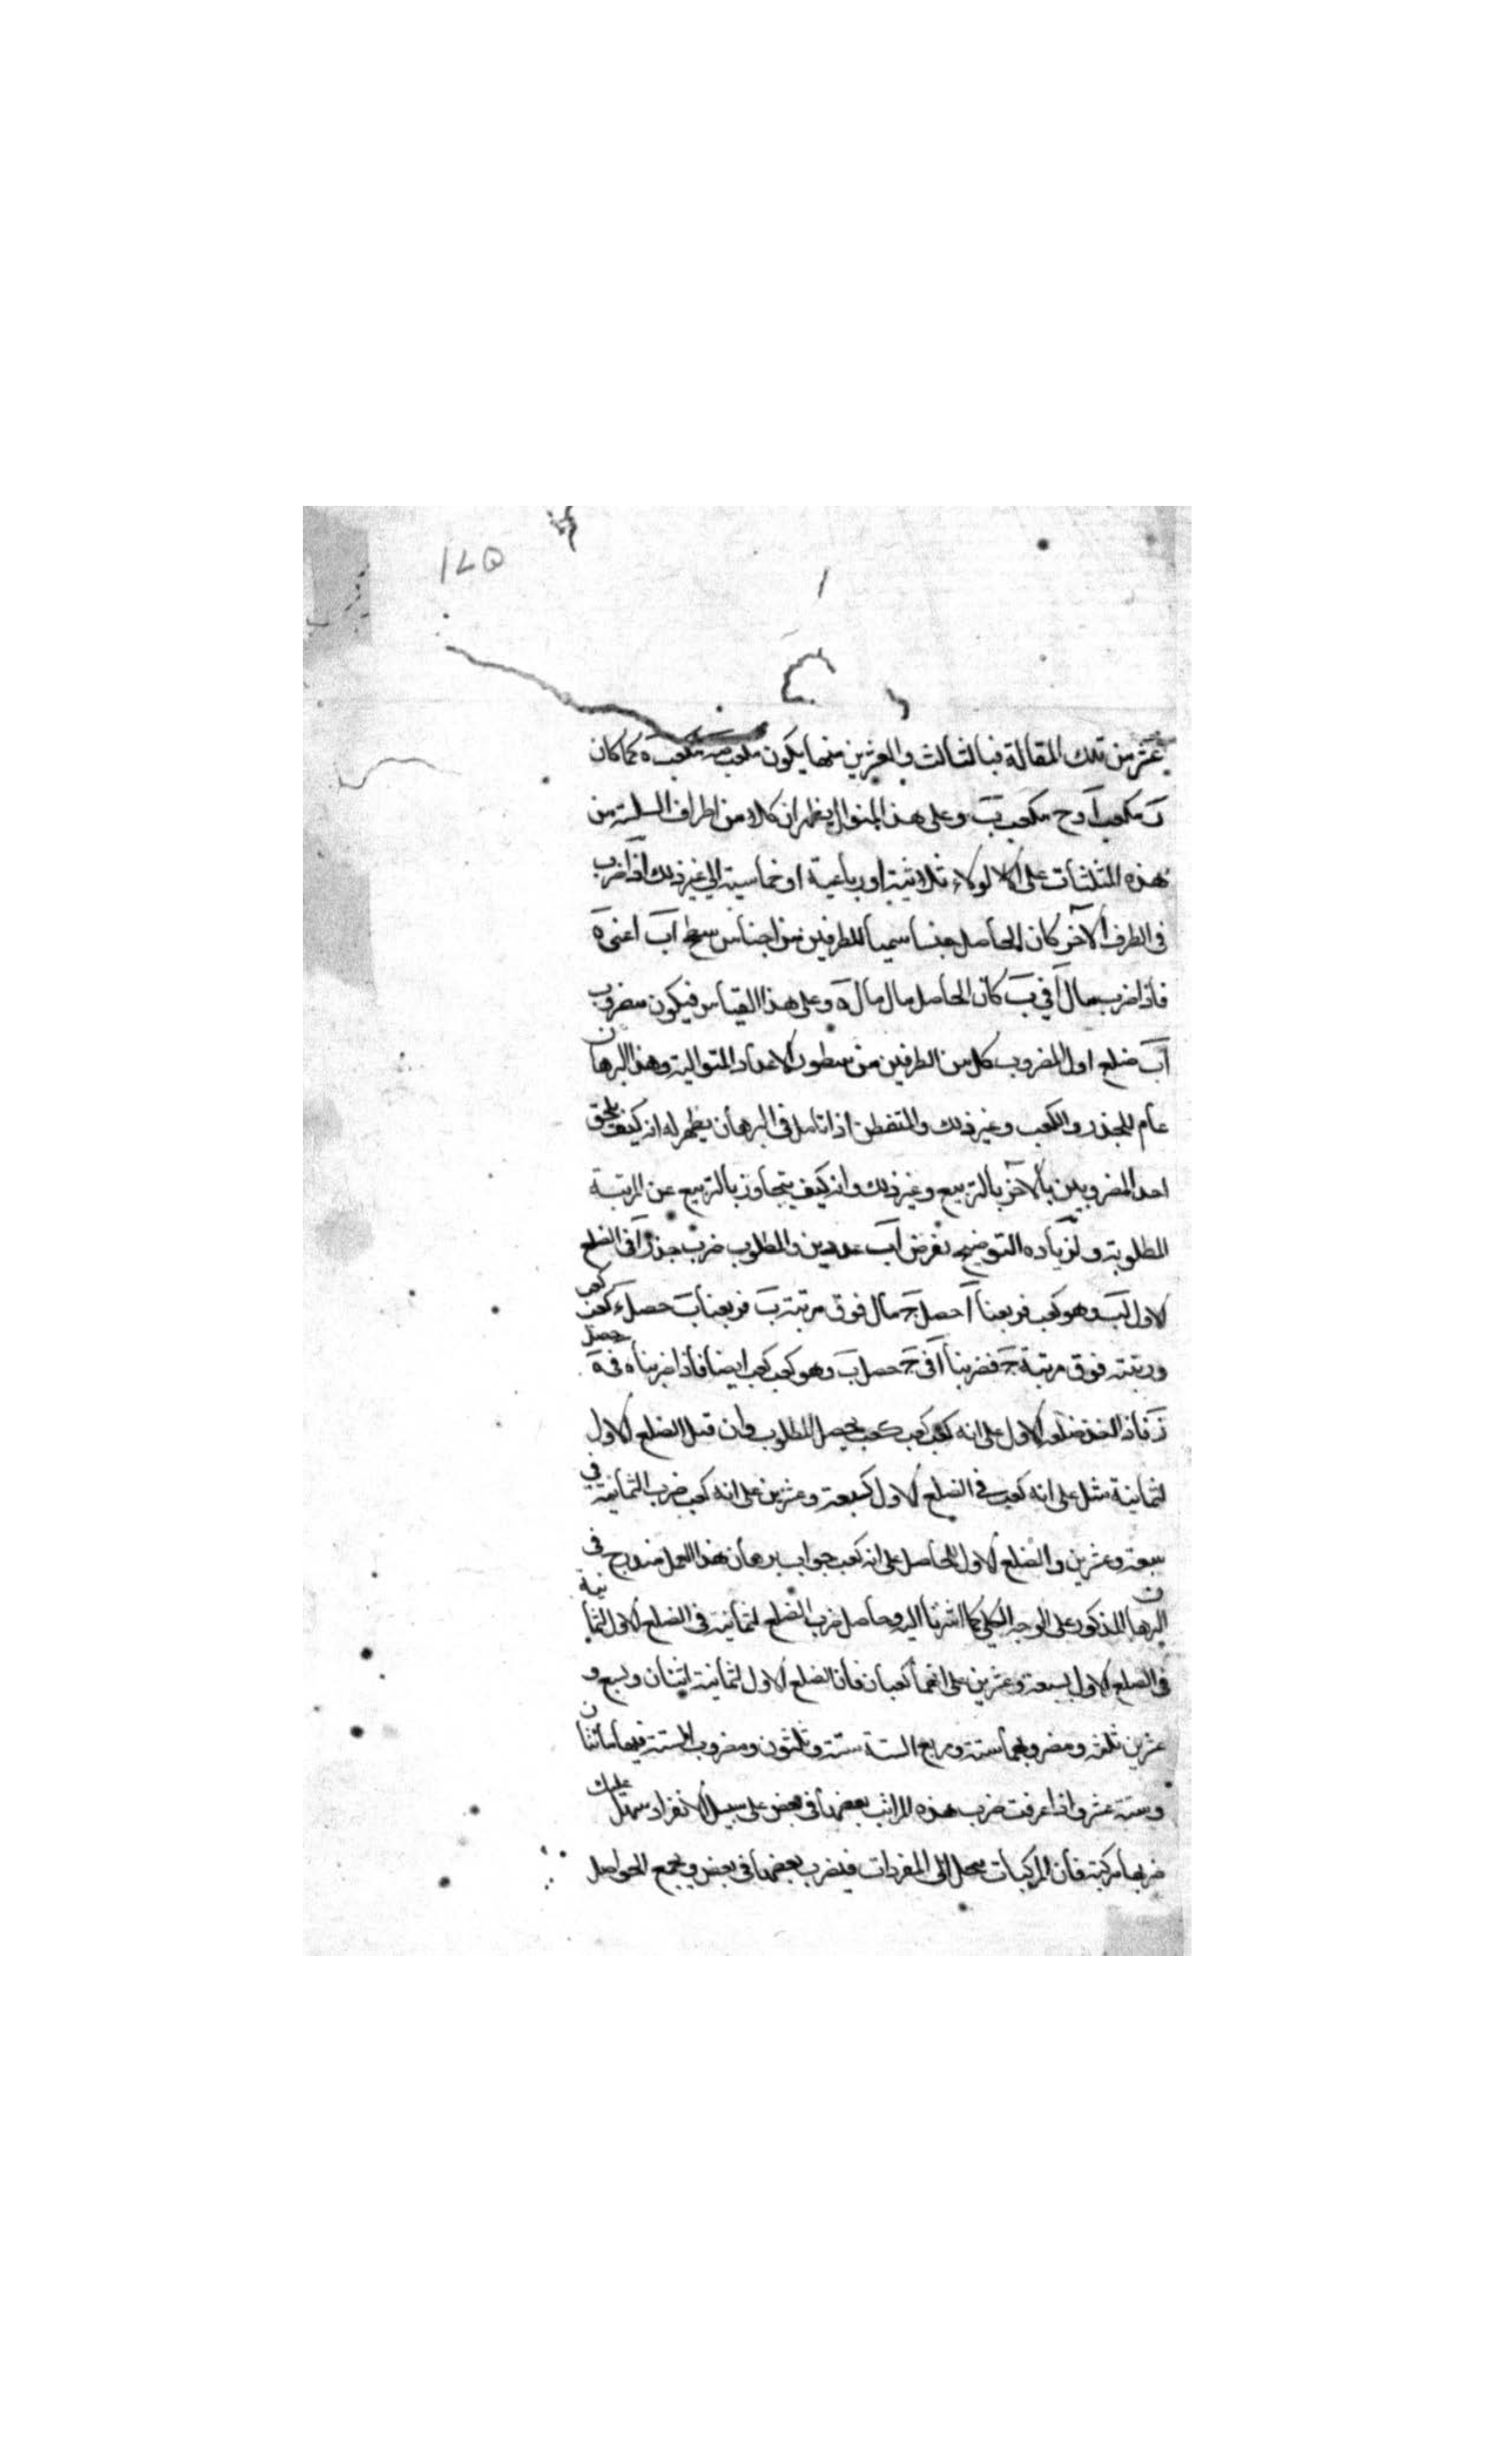 ١٤٥
عشر من تلك المقالة فبالثالث والعشرين منها يكون مكعب مكعب ه كما كان
د مكعب ا و ح مكعب ب وعلى هذا المنوال يظهر ان كلا من اطراف السلسلة من
هذه المثلثات على الولاء ثلاثية او رباعية او خماسية الى غير ذلك اذا ضرب
فى الطرف الآخر كان الحاصل جنسا سميا للطرفين من اجناس سطح اب اعنى ه
فاذا ضرب مال ا فى ب كان الحاصل مال مال ه وعلى هذا القياس فيكون مضروب
اب ضلع اول لمضروب كل من الطرفين من سطور الاعداد المتوالية وهذا البرهان
عام للجذر والكعب وغير ذلك والمتفطن اذا تامل فى البرهان يظهر له انه كيف يلحق
احد المضروبين بالآخر بالتربيع وغير ذلك وانه كيف يتجاوز بالتربيع عن المرتبة
المطلوبة ولزياده التوضيح نفرض اب عددين والمطلوب ضرب جذر ا فى الضلع
الاول لب وهو كعب فربعنا ا حصل ج مال فوق مرتبة ب فربعنا ب حصل ء كعب كعب
ورتبته فوق مرتبة ج فضربنا ا فى ج حصل ب وهو كعب كعب ايضا فاذا ضربناه فى ه حصل
ز فاذا اخذ ضلعه الاول على انه كعب كعب كعب يحصل المطلوب وان قيل الضلع الاول
لثمانية مثل على انه كعب فى الضلع الاول لسبعة وعشرين على انه كعب ضرب الثمانية فى
سبعة وعشرين والضلع الاول للحاصل على انه كعب جواب برهان هذا العمل مندرج فى
البرهان المذكور على الوجه الكلى كما اشرنا اليه وحاصل ضرب الضلع لثمانية فى الضلع الاول لثمانية
فى الضلع الاول لسبعة وعشرين على انهما كعبان فان الضلع الاول لثمانية اثنان ولسبع و
عشرين ثلثة ومضروبهما ستة ومربع الستة ستة وثلثون ومضروب الستة فيها مائتان
وستة عشر واذا عرفت ضرب هذه المراتب بعضها فى بعض على سبيل الانفراد سهل عليك
ضربها مركبة فان المركبات تنحل الى المفردات فيضرب بعضها فى بعض ويجمع الحواصل